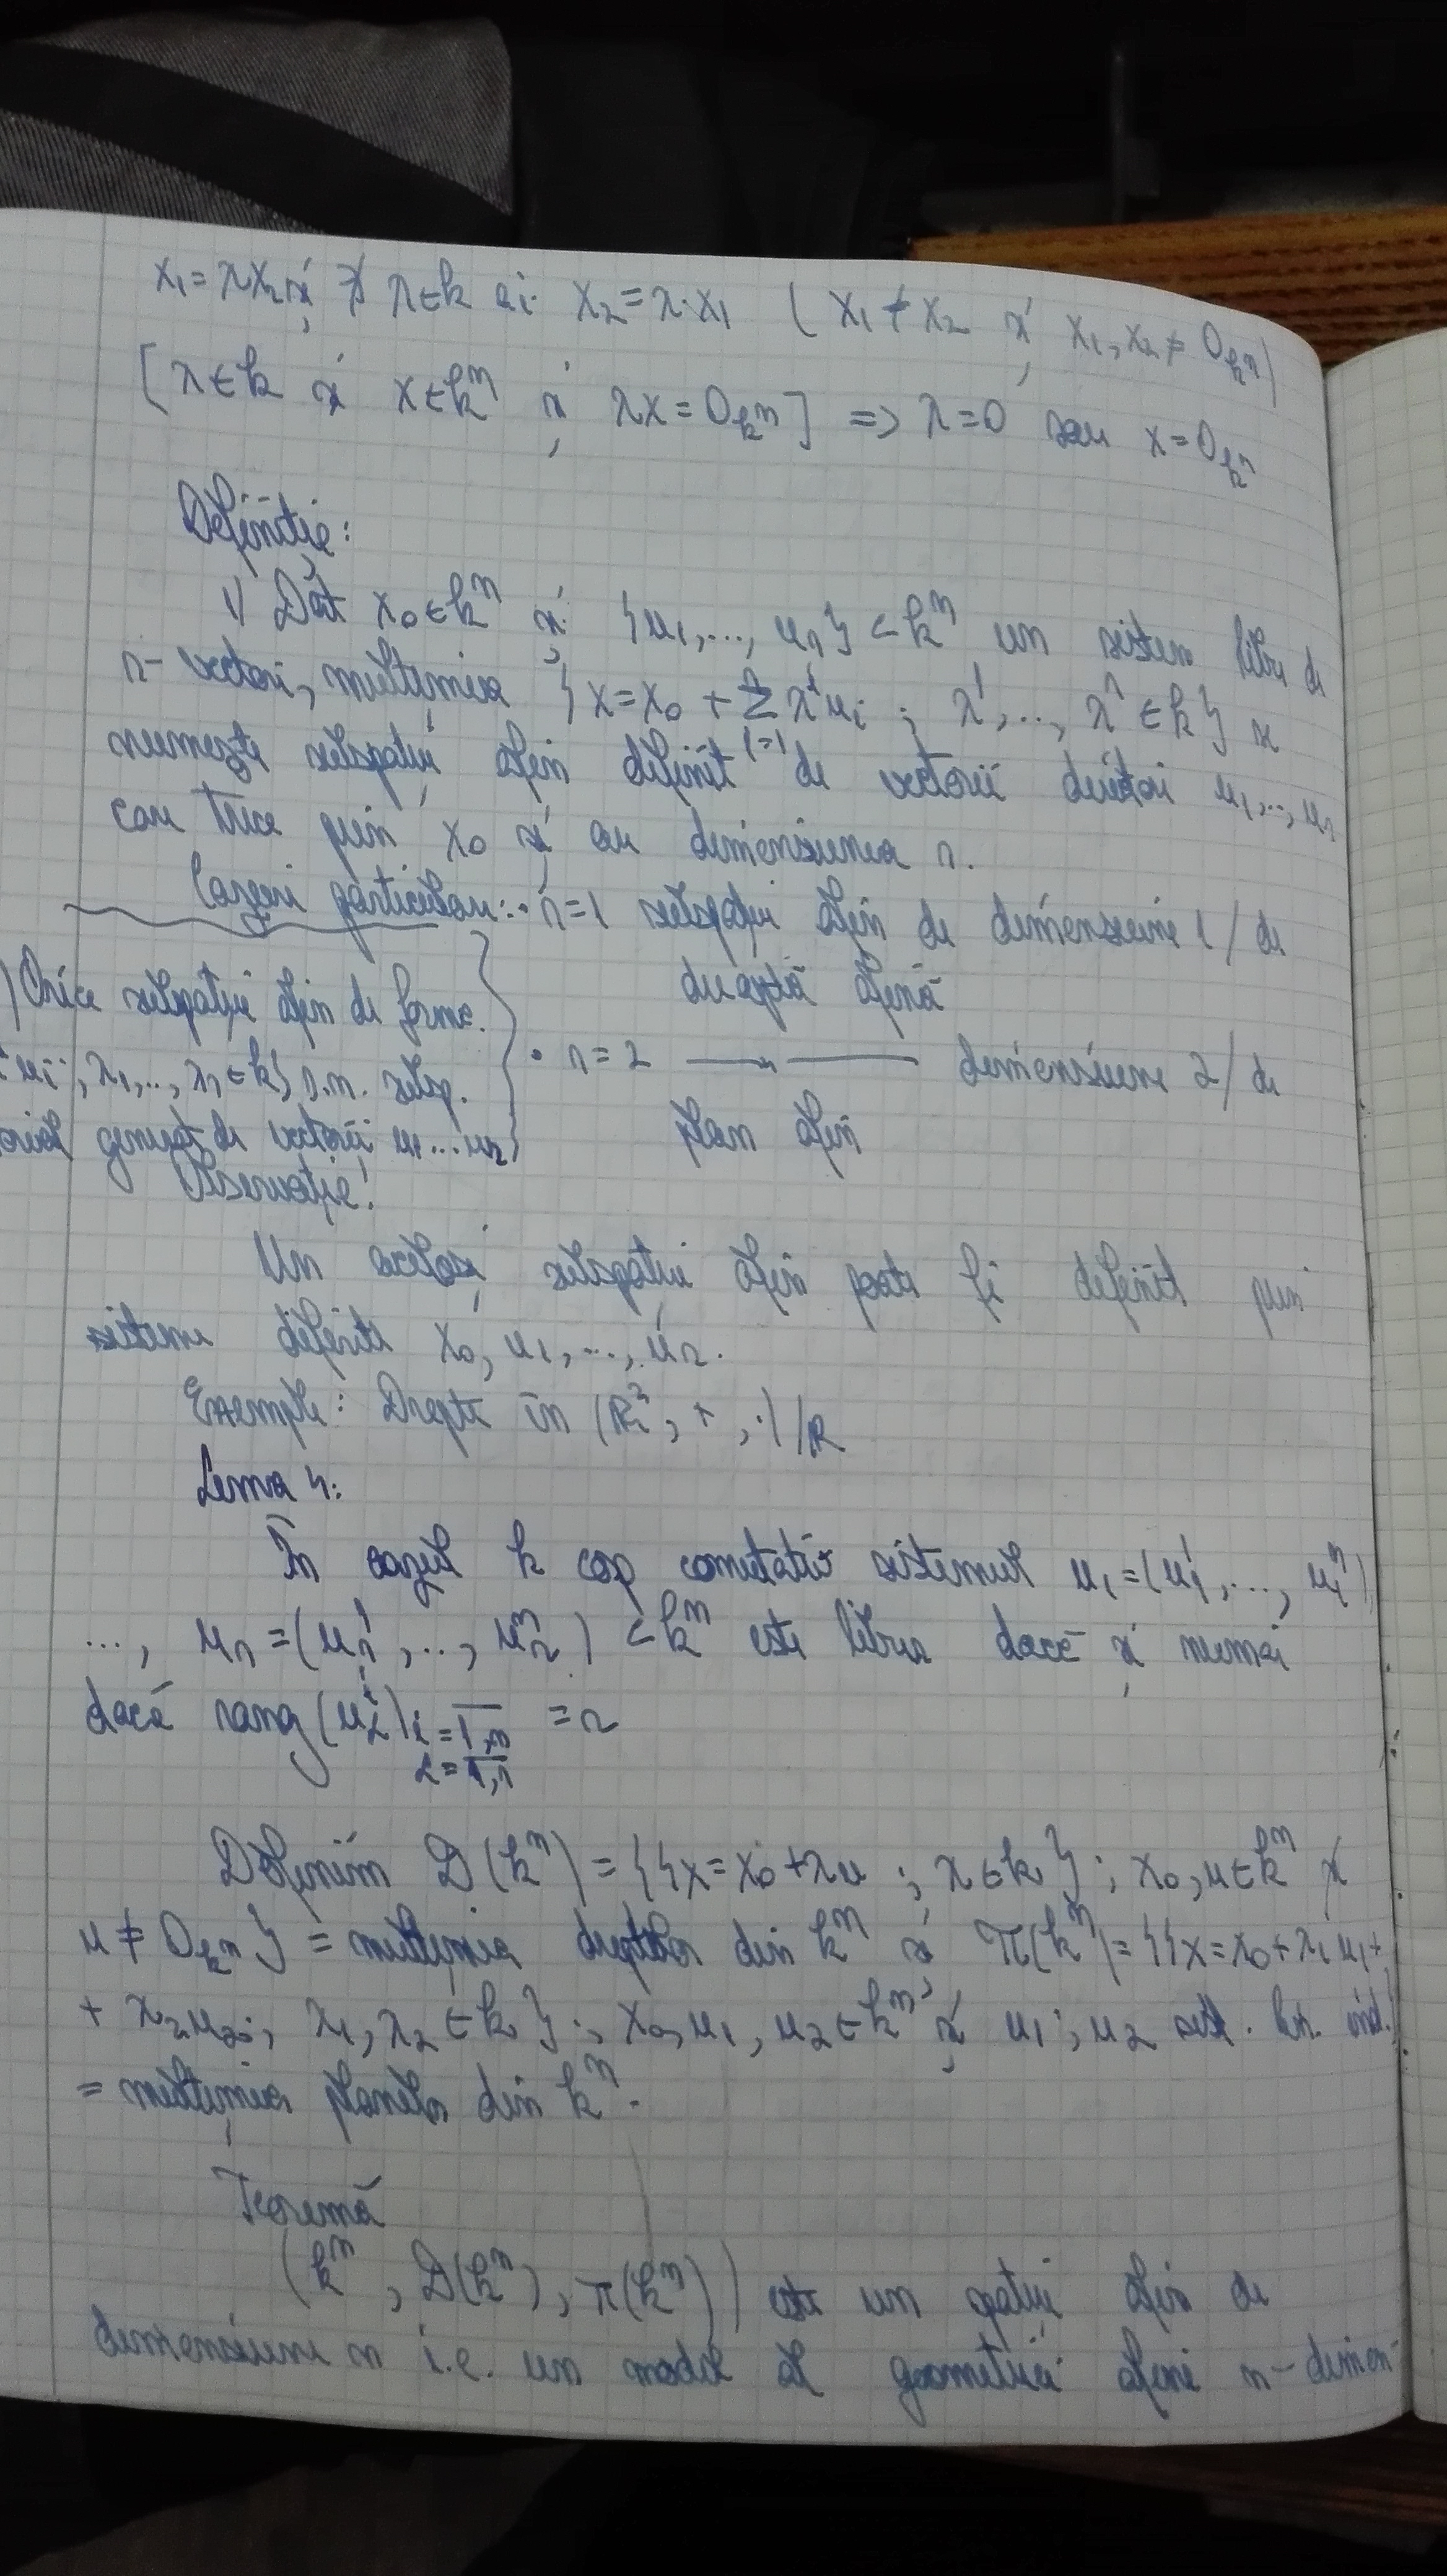 x₁ = λx₂ și ∄ λ∈k aî. x₂ = λ·x₁ ( x₁ ≠ x₂ și x₁, x₂ ≠ 0_{kⁿ} )
[ λ∈k și x∈kⁿ și λx = 0_{kⁿ} ] => λ=0 sau x = 0_{kⁿ}
Definiție:
1) Dat x₀∈kⁿ și {u₁,..., u_r} ⊂ kⁿ un sistem liber de
r- vectori, mulțimea {x = x₀ + Σ_{i=1}^{r} λⁱu_i ; λ¹,..., λʳ ∈k} se
numește subspațiu afin definit de vectorii directori u₁,..., u_r
care trece prin x₀ și are dimensiunea r.
Cazuri particulare: • r=1 subspațiu afin de dimensiune 1 / de
dreaptă afină
) Orice subspațiu afin de forma
u_i ; λ₁,..., λ_r ∈k} s.n. subsp.
generat de vectorii u₁...u_r
• r=2 —〃— dimensiune 2 / de
plan afin
Observație!
Un același subspațiu afin poate fi definit prin
sisteme diferite x₀, u₁, ..., u_r.
Exemple: Drepte în (ℝ², +, ·)/ℝ
Lema 4:
În cazul k corp comutativ sistemul u₁ = (u₁¹,..., u₁ⁿ)
..., u_r = (u_r¹,..., u_rⁿ) ⊂ kⁿ este liber dacă și numai
dacă rang (u_αⁱ) i = 1,n = r
α = 1,r
Definim D(kⁿ) = {{x = x₀ + λu ; λ∈k} ; x₀, u∈kⁿ și
u ≠ 0_{kⁿ}} = mulțimea dreptelor din kⁿ și π(kⁿ) = {{x = x₀ + λ₁u₁ +
+ λ₂u₂ ; λ₁, λ₂ ∈k} ; x₀, u₁, u₂∈kⁿ și u₁, u₂ sist. lin. ind.}
= mulțimea planelor din kⁿ.
Teoremă
(kⁿ, D(kⁿ), π(kⁿ)) este un spațiu afin de
dimensiune n i.e. un model al geometriei afine n-dimen-